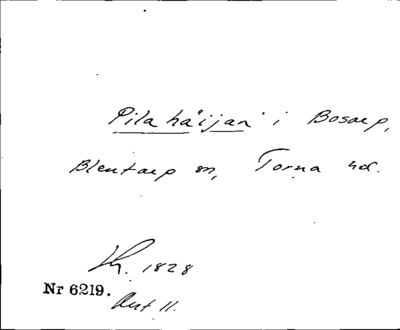 Pilahäijan i Bosarp,
Blentarp sn, Torna hd.
1828
Nr 6219.